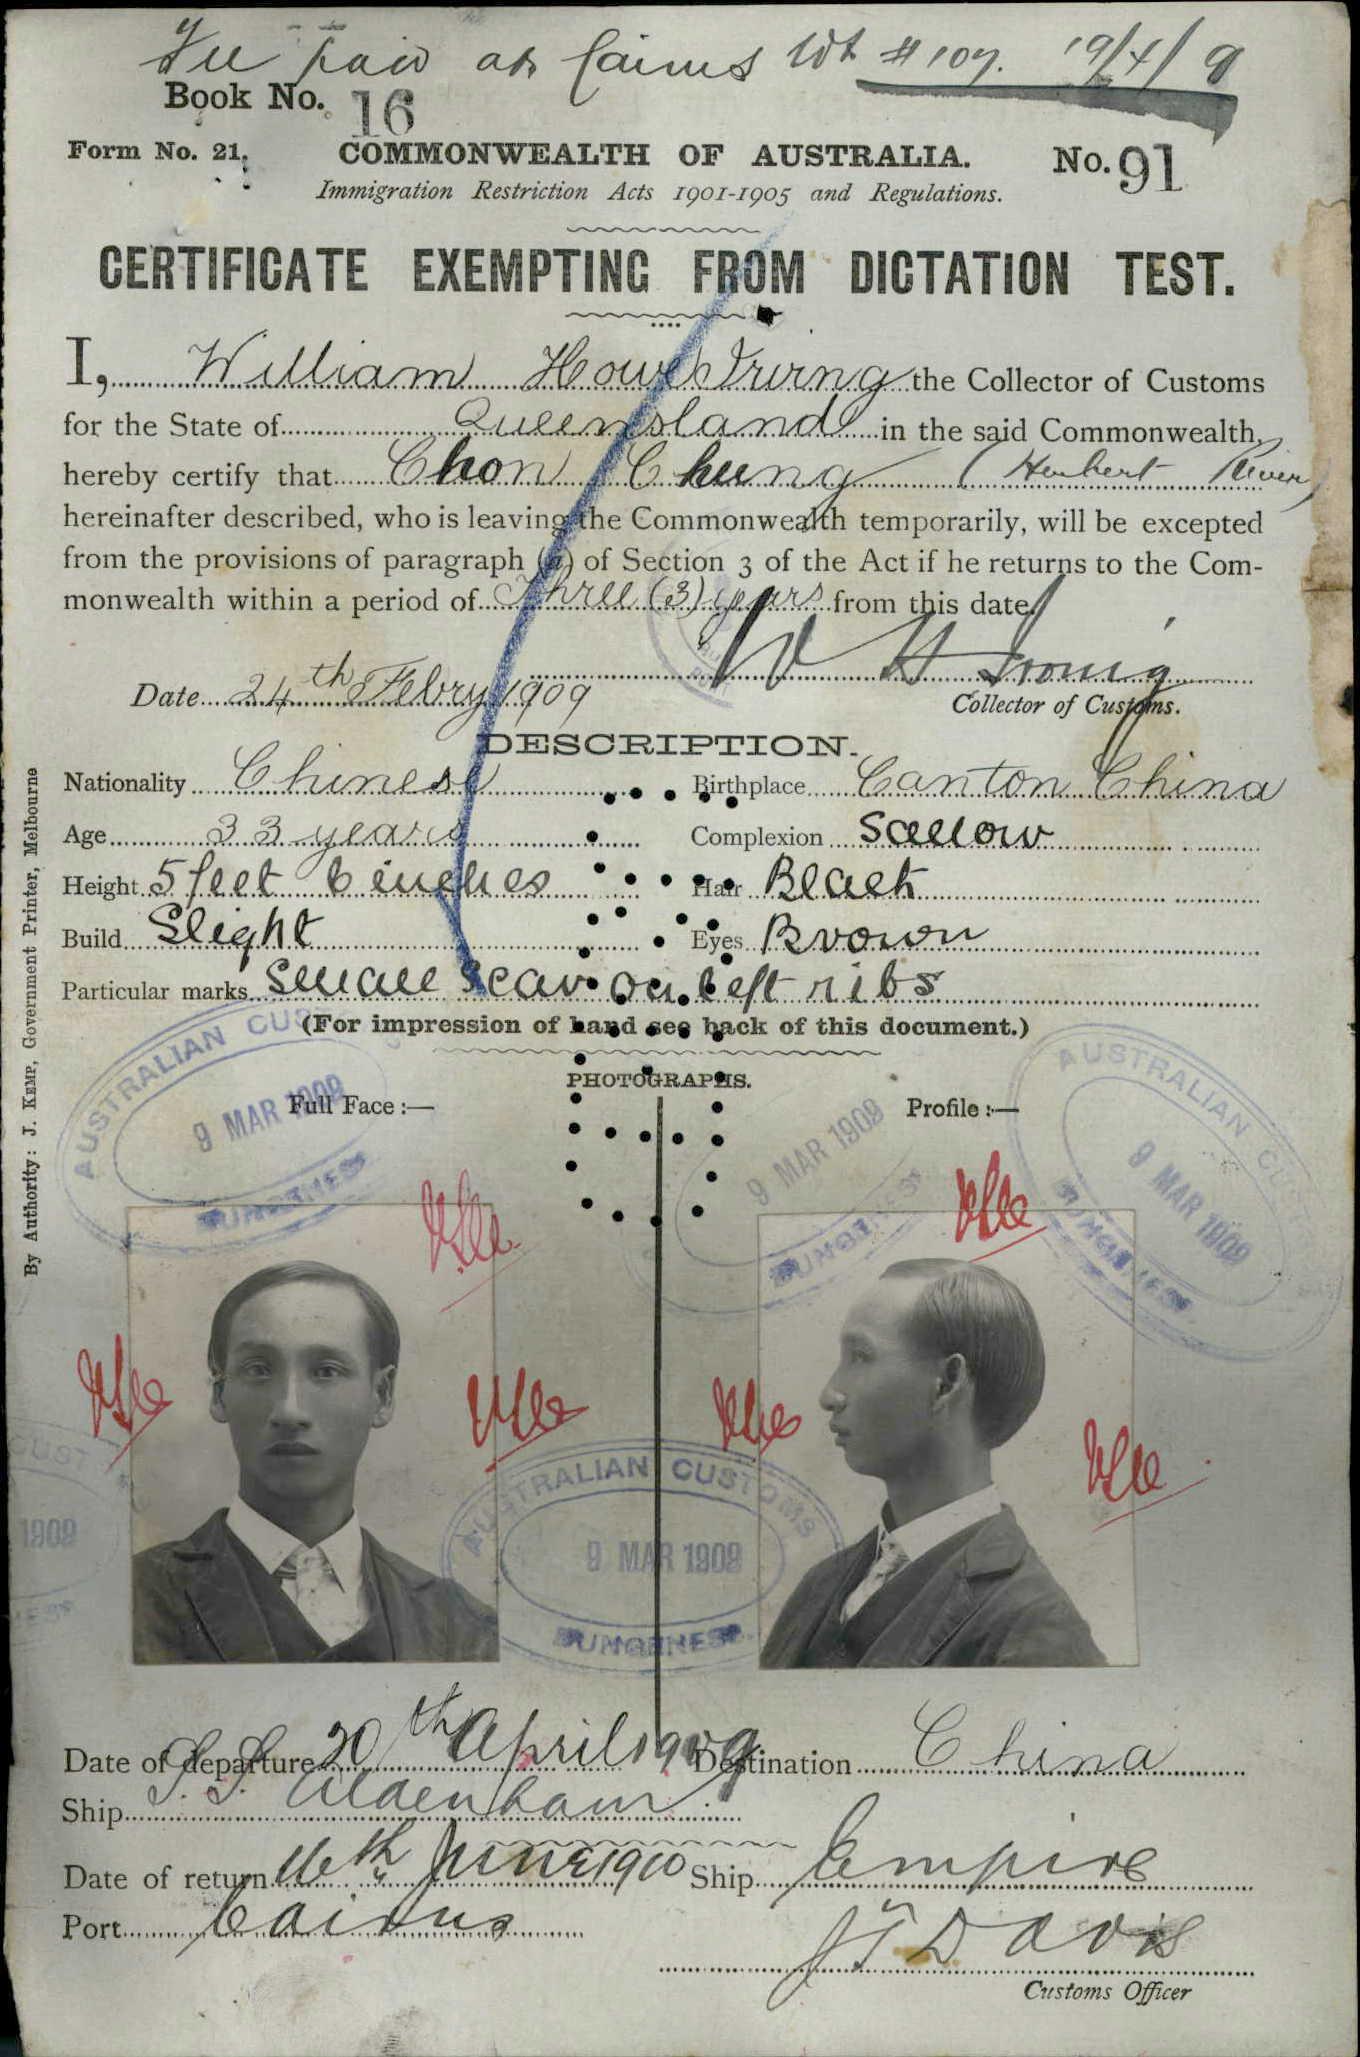 Fee paid at Cairns Wt # 107. 19/4/9
Book No. 16
Form No. 21. COMMONWEALTH OF AUSTRALIA. No. 91
Immigration Restriction Acts 1901-1905 and Regulations.
CERTIFICATE EXEMPTING FROM DICTATION TEST.
I, William Howe Irving the Collector of Customs
for the State of Queensland in the said Commonwealth,
hereby certify that Chon Chung (Herbert River)
hereinafter described, who is leaving the Commonwealth temporarily, will be excepted
from the provisions of paragraph (a) of Section 3 of the Act if he returns to the Com-
monwealth within a period of Three (3) years from this date.
W H Irving
Date 24th Febry 1909 Collector of Customs.
DESCRIPTION.
Nationality Chinese Birthplace Canton China
Age 33 years Complexion Sallow
Height 5 feet 6 inches Hair Black
Build Slight Eyes Brown
Particular marks Small scar on left ribs
(For impression of hand see back of this document.)
PHOTOGRAPHS.
Full Face :— Profile :—
AUSTRALIAN CUSTOMS
9 MAR 1909
AUSTRALIAN CUSTOMS
9 MAR 1909
9 MAR 1909
AUSTRALIAN CUSTOMS
9 MAR 1909
1909
Date of departure 20th April 1909 Destination China
Ship S.S. Aldenham
Date of return 16th June 1910 Ship Empire
Port Cairns
J T Davis
Customs Officer
By Authority: J. KEMP, Government Printer, Melbourne